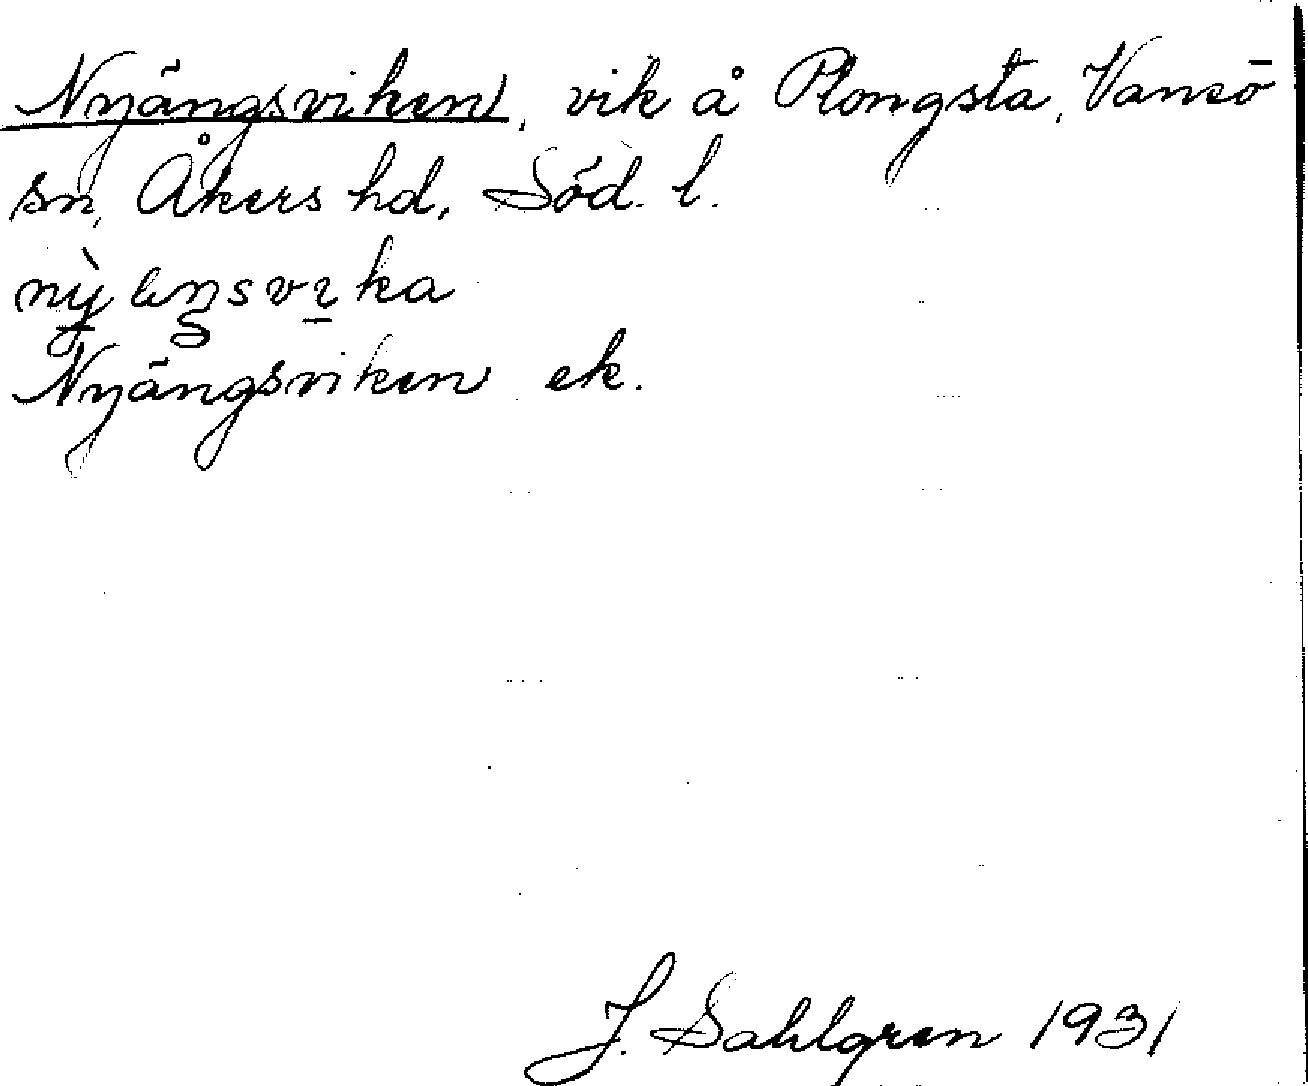 Nyängsviken, vik å Plongsta, Vansö
sn, Åkers hd, Söd. l.
nỳ ɛŋsvıka
Nyängsviken ek.
J. Sahlgren 1931